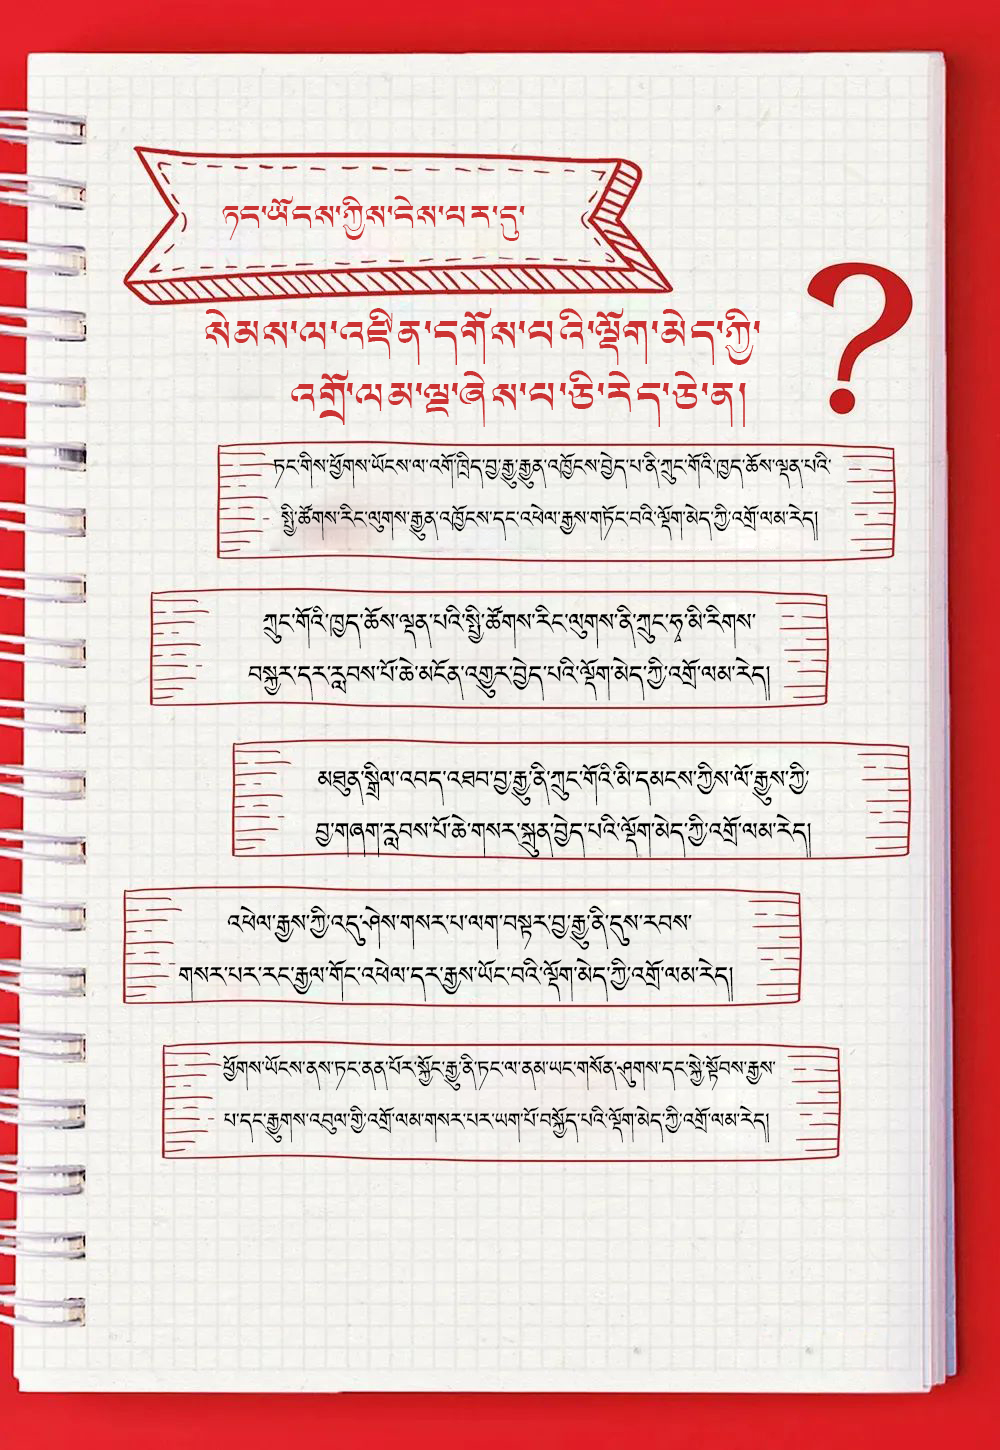 ཏང་ཡོངས་ཀྱིས་ངེས་པར་དུ་
སེམས་ལ་འཛིན་དགོས་པའི་ལྡོག་མེད་ཀྱི་
འགྲོ་ལམ་ལྔ་ཞེས་པ་ཅི་རེད་ཅེ་ན།
ཏང་གིས་ཕྱོགས་ཡོངས་ལ་འགོ་ཁྲིད་བྱ་རྒྱུ་རྒྱུན་འཁྱོངས་བྱེད་པ་ནི་ཀྲུང་གོའི་ཁྱད་ཆོས་ལྡན་པའི་
སྤྱི་ཚོགས་རིང་ལུགས་རྒྱུན་འཁྱོངས་དང་འཕེལ་རྒྱས་གཏོང་བའི་ལྡོག་མེད་ཀྱི་འགྲོ་ལམ་རེད།
ཀྲུང་གོའི་ཁྱད་ཆོས་ལྡན་པའི་སྤྱི་ཚོགས་རིང་ལུགས་ནི་ཀྲུང་ཧྭ་མི་རིགས་
བསྐྱར་དར་རླབས་པོ་ཆེ་མངོན་འགྱུར་བྱེད་པའི་ལྡོག་མེད་ཀྱི་འགྲོ་ལམ་རེད།
མཐུན་སྒྲིལ་འབད་འཐབ་བྱ་རྒྱུ་ནི་ཀྲུང་གོའི་མི་དམངས་ཀྱིས་ལོ་རྒྱུས་ཀྱི་
བྱ་གཞག་རླབས་པོ་ཆེ་གསར་སྐྲུན་བྱེད་པའི་ལྡོག་མེད་ཀྱི་འགྲོ་ལམ་རེད།
འཕེལ་རྒྱས་ཀྱི་འདུ་ཤེས་གསར་པ་ལག་བསྟར་བྱ་རྒྱུ་ནི་དུས་རབས་
གསར་པར་རང་རྒྱལ་གོང་འཕེལ་དར་རྒྱས་ཡོང་བའི་ལྡོག་མེད་ཀྱི་འགྲོ་ལམ་རེད།
ཕྱོགས་ཡོངས་ནས་ཏང་ནན་པོར་སྐྱོང་རྒྱུ་ནི་ཏང་ལ་ནམ་ཡང་གསོན་ཤུགས་དང་སྐྱེ་སྟོབས་རྒྱས་
པ་དང་རྒྱུགས་འབུལ་གྱི་འགྲོ་ལམ་གསར་པར་ཡག་པོ་བསྐྱོད་པའི་ལྡོག་མེད་ཀྱི་འགྲོ་ལམ་རེད།